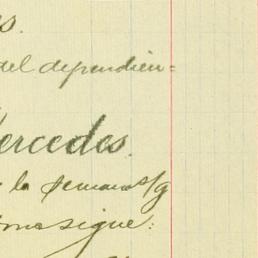 s.
del dependien=
Mercedes.
la semana s/g
como sigue: